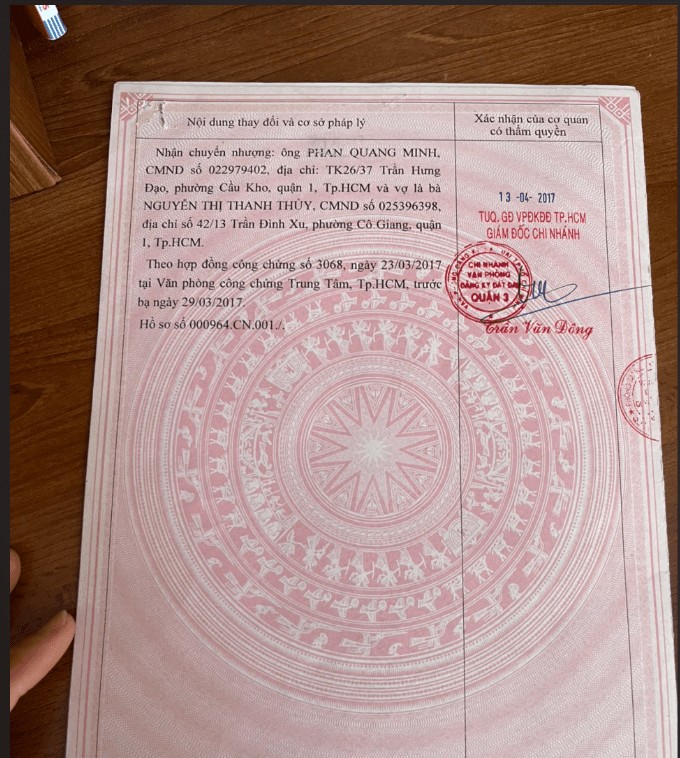 Nội dung thay đổi và cơ sở pháp lý
Xác nhận của cơ quan
có thẩm quyền
Nhận chuyển nhượng: ông PHAN QUANG MINH,
CMND số 022979402, địa chỉ: TK26/37 Trần Hưng
Đạo, phường Cầu Kho, quận 1, Tp.HCM và vợ là bà
NGUYỄN THỊ THANH THỦY, CMND số 025396398,
địa chỉ số 42/13 Trần Đình Xu, phường Cô Giang, quận
1, Tp.HCM.
Theo hợp đồng công chứng số 3068, ngày 23/03/2017
tại Văn phòng công chứng Trung Tâm, Tp.HCM, trước
bạ ngày 29/03/2017.
Hồ sơ số 000964.CN.001./.
13 -04- 2017
TUQ. GĐ VPĐKĐĐ TP.HCM
GIÁM ĐỐC CHI NHÁNH
CHI NHÁNH
VĂN PHÒNG
ĐĂNG KÝ ĐẤT ĐAI
QUẬN 3
Trần Văn Đông